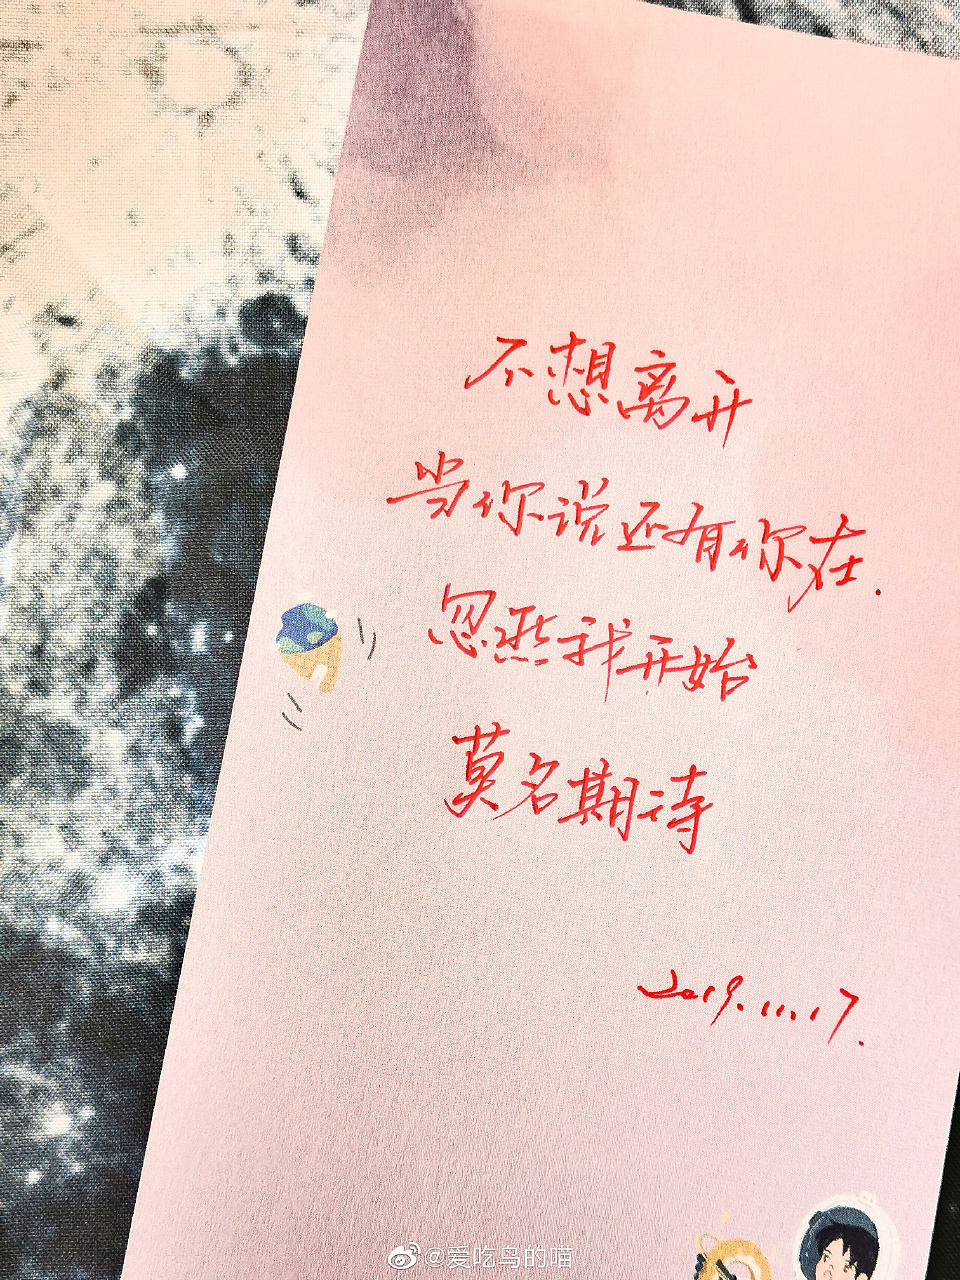 不想离开
当你说还有你在.
忽然我开始
莫名期待
2019.11.17.
@爱吃鸟的喵